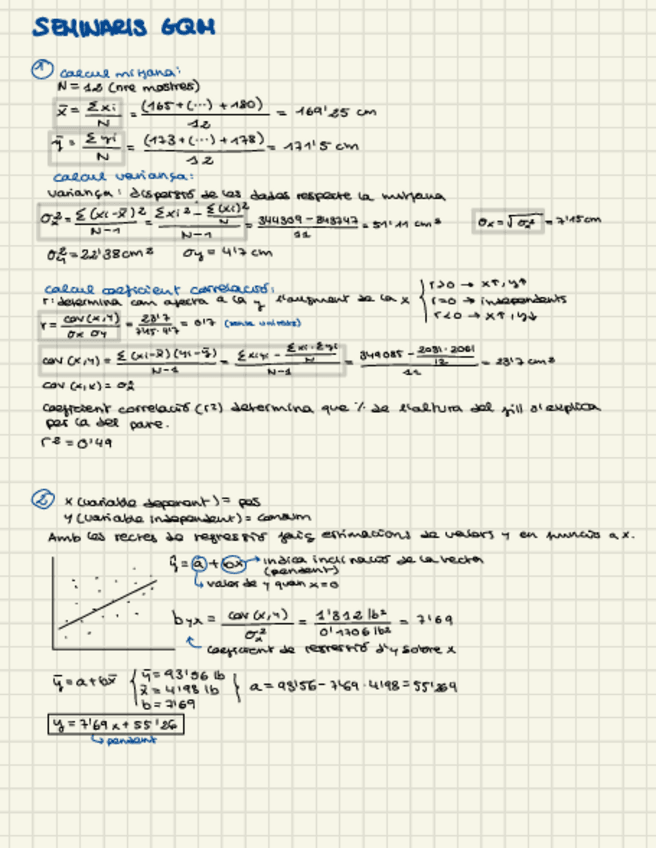 SEMINARIS GQM
1 calcul mitjana:
N = 12 (nre mostres)
x̄ = Σxi / N = (165 + (...) + 180) / 12 = 169'25 cm
ȳ = Σyi / N = (173 + (...) + 178) / 12 = 171'5 cm
calcul variança:
variança: dispersió de les dades respecte la mitjana
σx² = Σ(xi - x̄)² / N-1 = Σxi² - Σ(xi)²/N / N-1 = 344309 - 343747 / 11 = 51'11 cm² σx = √σx² = 7'15 cm
σy² = 22'38 cm² σy = 4'7 cm
calcul coeficient correlació:
r: determina com afecta a la y l'augment de la x { r>0 → x↑, y↑
r=0 → independents
r<0 → x↑, y↓
r = cov(x,y) / σx σy = 23'7 / 7'15·4'7 = 0'7 (sense unitats)
cov(x,y) = Σ(xi - x̄)(yi - ȳ) / N-1 = Σxiyi - Σxi·Σyi/N / N-1 = 349085 - 2031·2061/12 / 11 = 23'7 cm²
cov(x,x) = σx²
coeficient correlació (r²) determina que % de l'altura del fill s'explica
per la del pare.
r² = 0'49
2 x (variable dependent) = pes
y (variable independent) = consum
Amb les rectes de regressió faig estimacions de valors y en funció a x.
ŷ = a + bx → indica inclinació de la recta
(pendent)
↳ valor de y quan x=0
byx = cov(x,y) / σx² = 1'312 lb² / 0'1706 lb² = 7'69
coeficient de regressió d'y sobre x
ȳ = a + bx̄ { ȳ = 93'56 lb
x̄ = 4'98 lb
b = 7'69 } a = 93'56 - 7'69 · 4'98 = 55'269
y = 7'69x + 55'26
↳ pendent